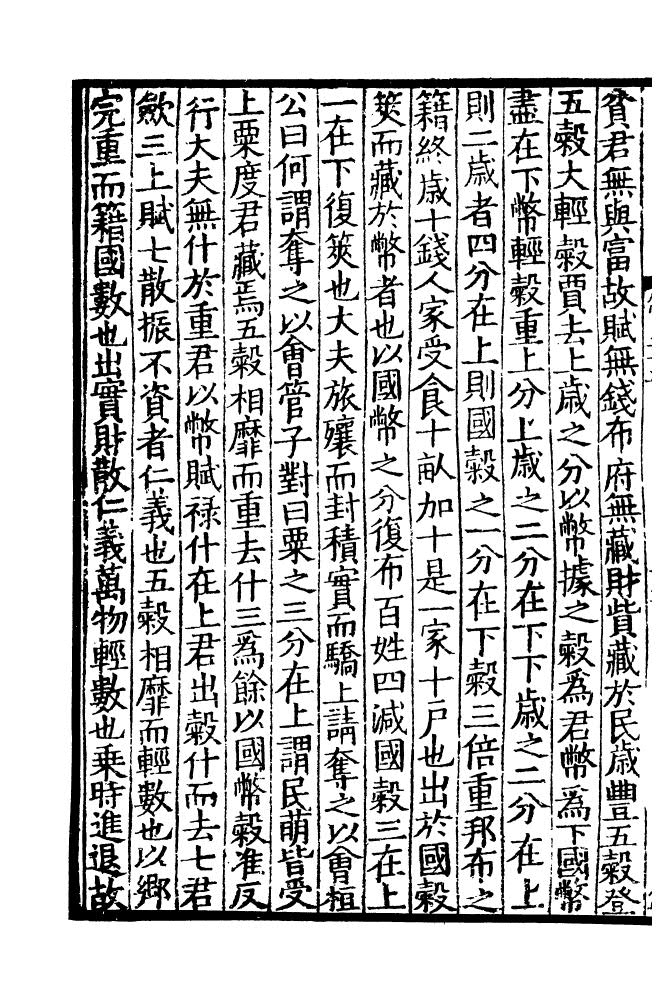 貧君無與富故賦無錢布府無藏財貲藏於民歲豐五穀登
五穀大輕穀賈去上歲之分以幣據之穀爲君幣爲下國幣
盡在下幣輕穀重上分上歲之二分在下下歲之二分在上
則二歲者四分在上則國穀之一分在下穀三倍重邦布之
籍終歲十錢人家受食十畝加十是一家十戶也出於國穀
筴而藏於幣者也以國幣之分復布百姓四減國穀三在上
一在下復筴也大夫旅壤而封積實而驕上請奪之以會桓
公曰何謂奪之以會管子對曰粟之三分在上謂民萌皆受
上粟度君藏焉五穀相靡而重去什三爲餘以國幣穀准反
行大夫無什於重君以幣賦祿什在上君出穀什而去七君
斂三上賦七散振不資者仁義也五穀相靡而輕數也以鄉
完重而籍國數也出實財散仁義萬物輕數也乗時進退故